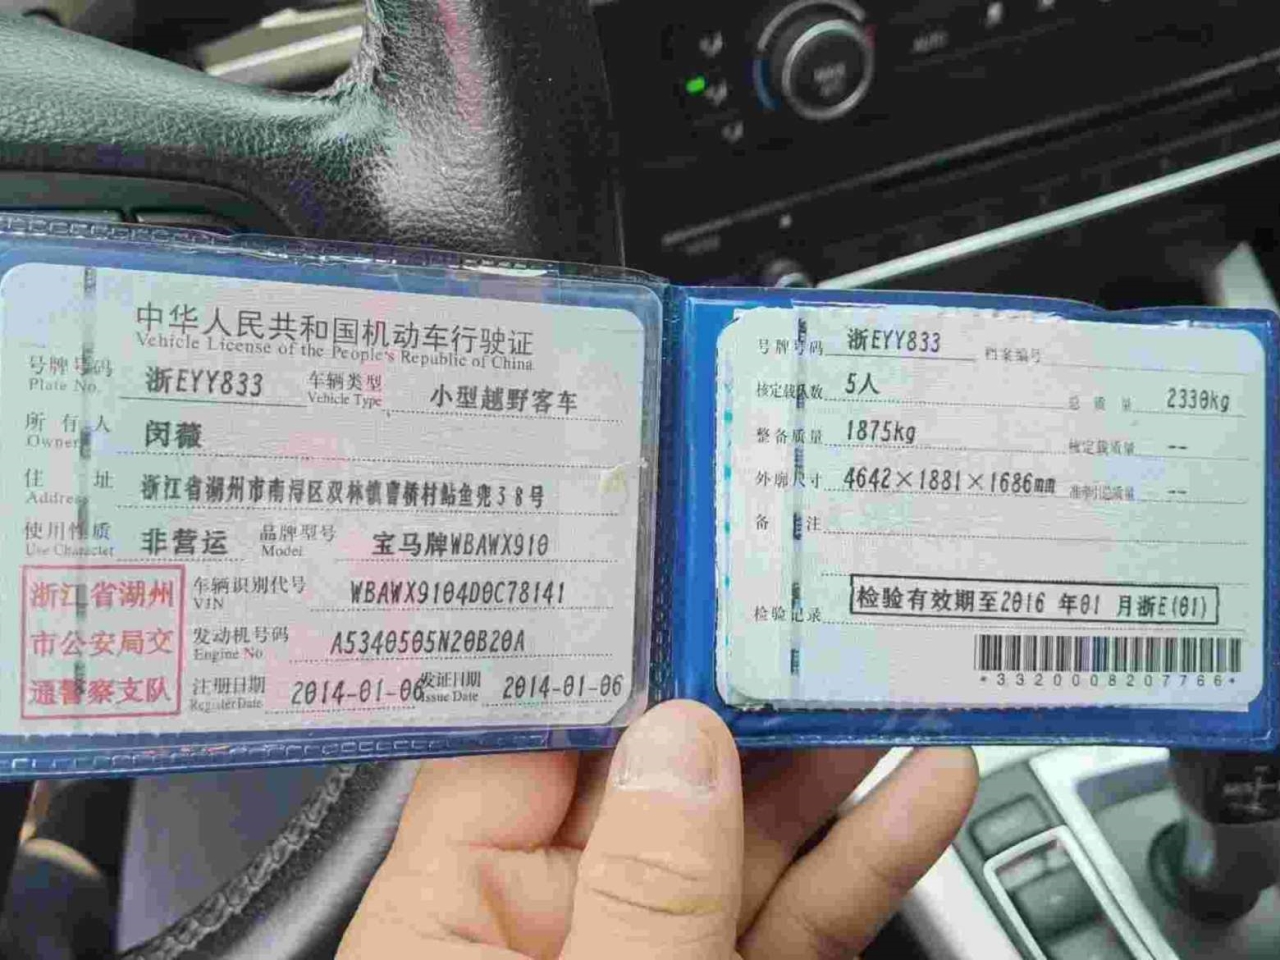 中华人民共和国机动车行驶证
Vehicle License of the People's Republic of China
号牌号码 浙EYY833 车辆类型 小型越野客车
Plate No. Vehicle Type
所有人 闵薇
Owner
住址 浙江省湖州市南浔区双林镇曹桥村鲇鱼兜38号
Address
使用性质 非营运 品牌型号 宝马牌WBAWX910
Use Character Model
浙江省湖州
市公安局交
通警察支队
车辆识别代号 WBAWX9104D0C78141
VIN
发动机号码 A5340505N20B20A
Engine No
注册日期 2014-01-06 发证日期 2014-01-06
Register Date Issue Date
号牌号码 浙EYY833 档案编号
核定载人数 5人 总质量 2330kg
整备质量 1875kg 核定载质量 --
外廓尺寸 4642×1881×1686mm 准牵引总质量 --
备注
检验记录 检验有效期至2016年01月浙E(01)
*3320008207766*